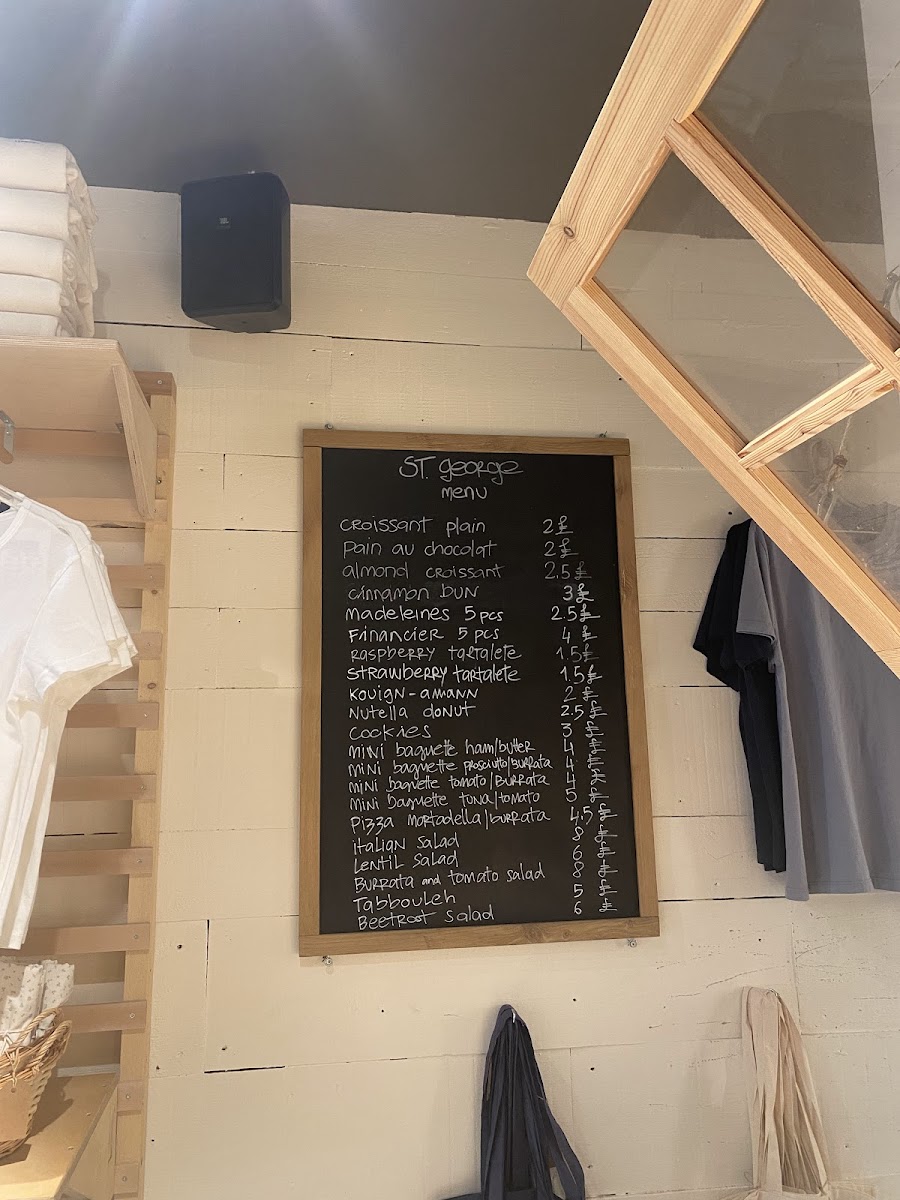 JBL
ST. george
menu
croissant plain 2
pain au chocolat 2
almond croissant 2.5
cinnamon bun 3
madeleines 5 pcs 2.5
Financier 5 pcs 4
Raspberry tartalete 1.5
Strawberry tartalete 1.5
Kouign-amann 2
Nutella donut 2.5
cookies 3
mini baguette ham/butter 4
mini baguette prosciuto/Burrata 4
mini baguette tomato/Burrata 4
mini baguette tuna/tomato 5
Pizza mortadella/burrata 4.5
italian salad 8
Lentil salad 6
Burrata and tomato salad 8
Tabbouleh 5
Beetroot salad 6